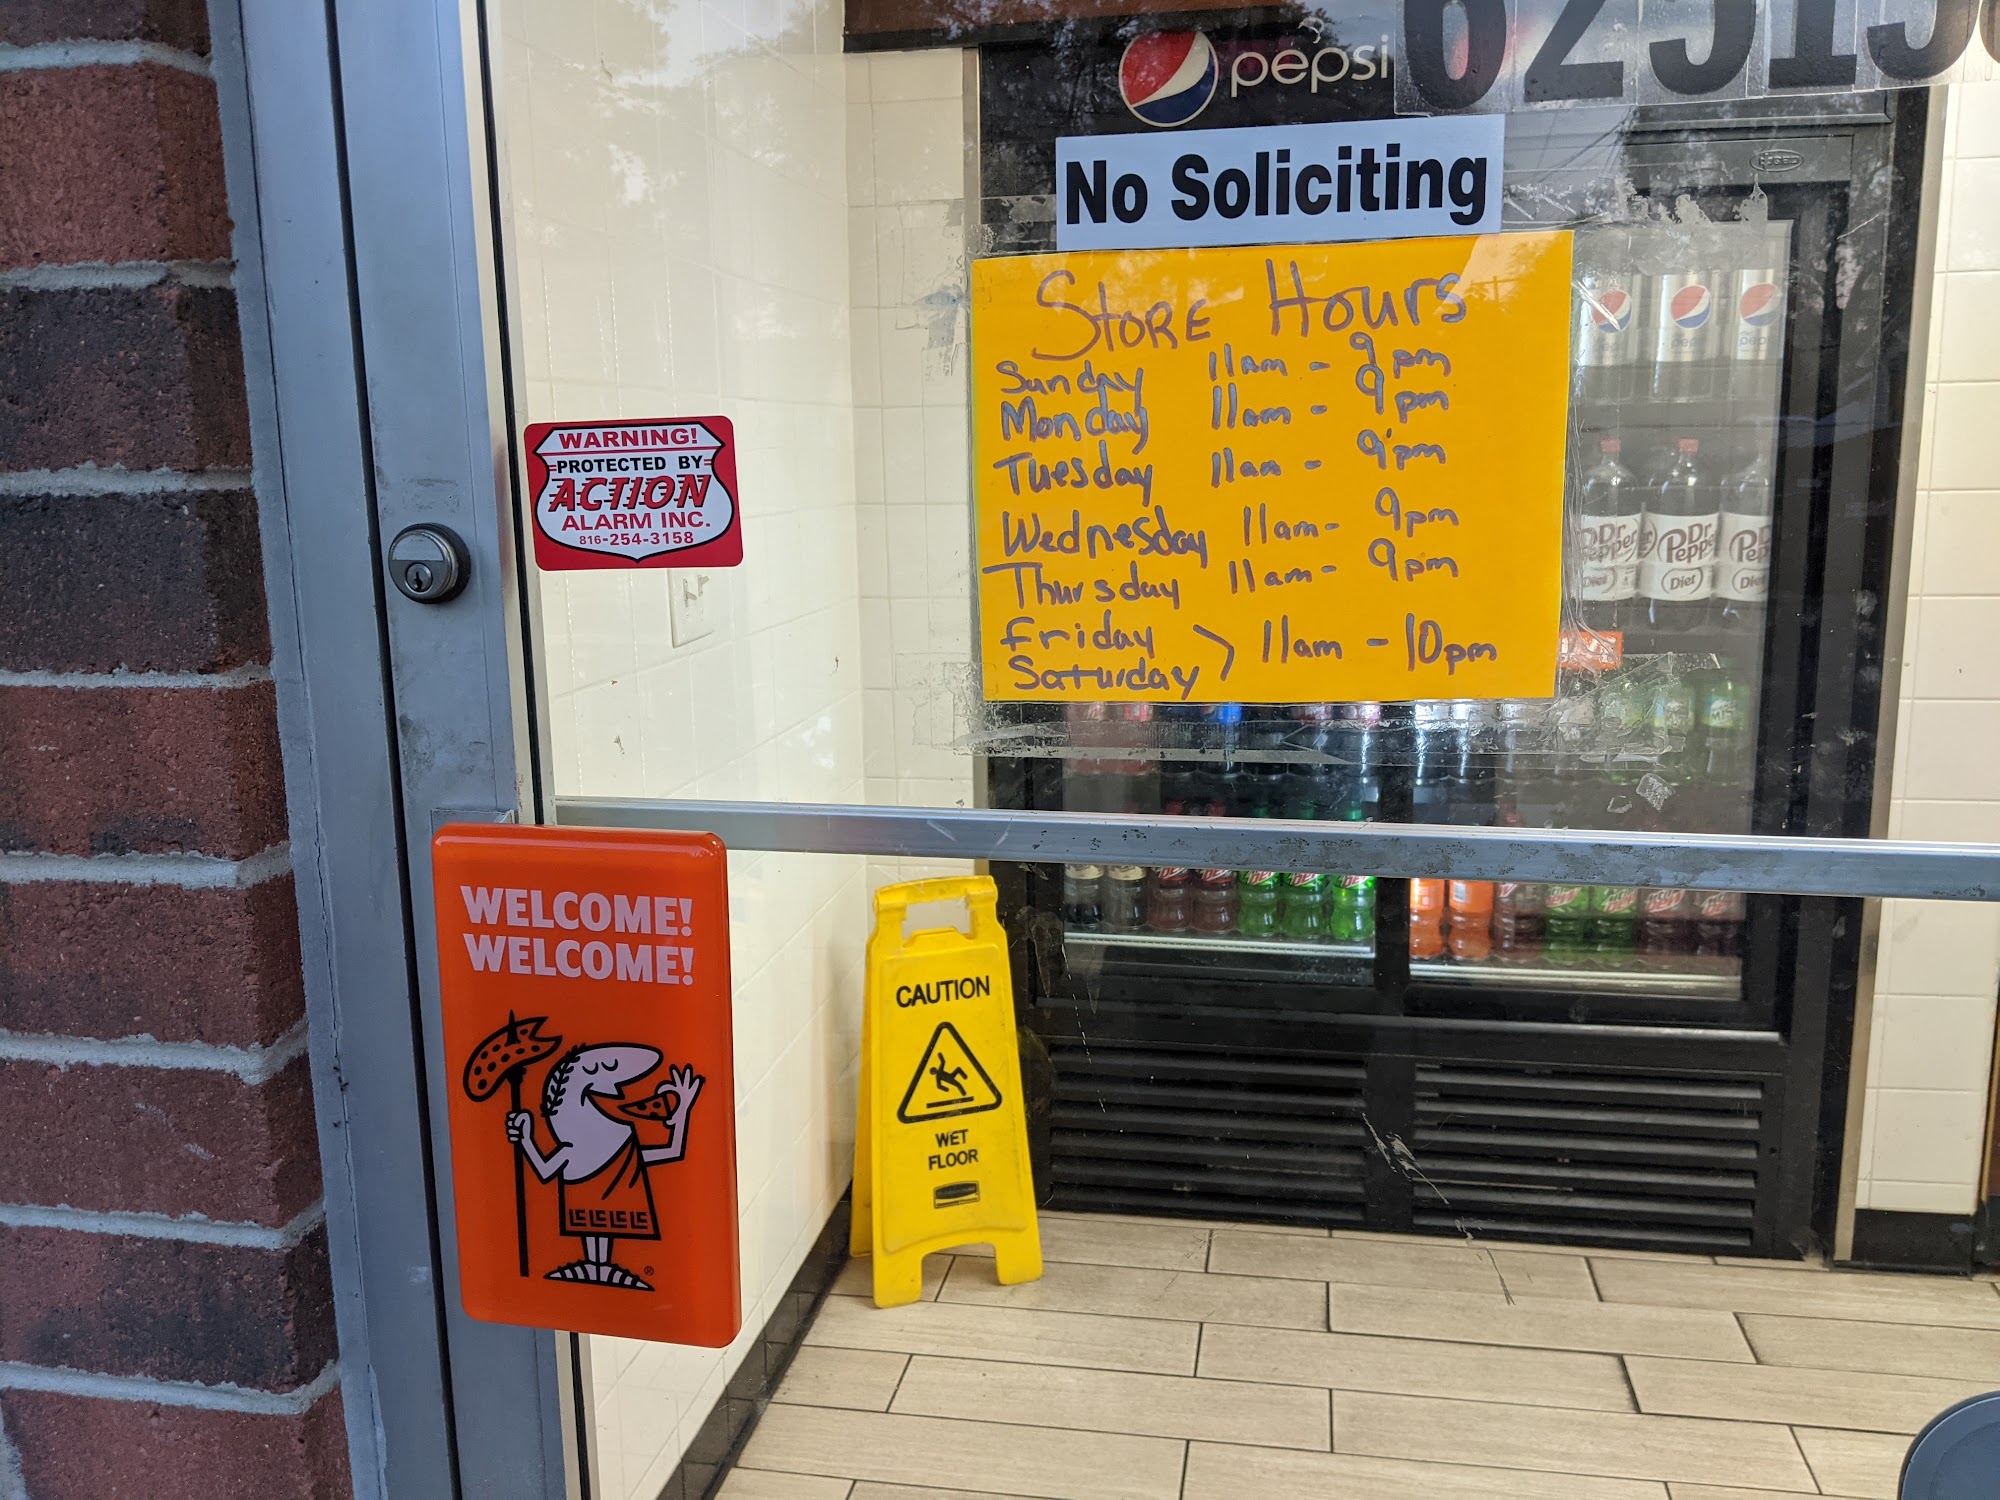 pepsi
No Soliciting
STORE Hours
Sunday 11am - 9pm
Monday 11am - 9pm
Tuesday 11am - 9pm
Wednesday 11am - 9pm
Thursday 11am - 9pm
Friday
Saturday > 11am - 10pm
WARNING!
PROTECTED BY
ACTION
ALARM INC.
816-254-3158
WELCOME!
WELCOME!
LC LC LC LC
CAUTION
WET
FLOOR
Dr Pepper
Diet
Dr Pepper
Diet